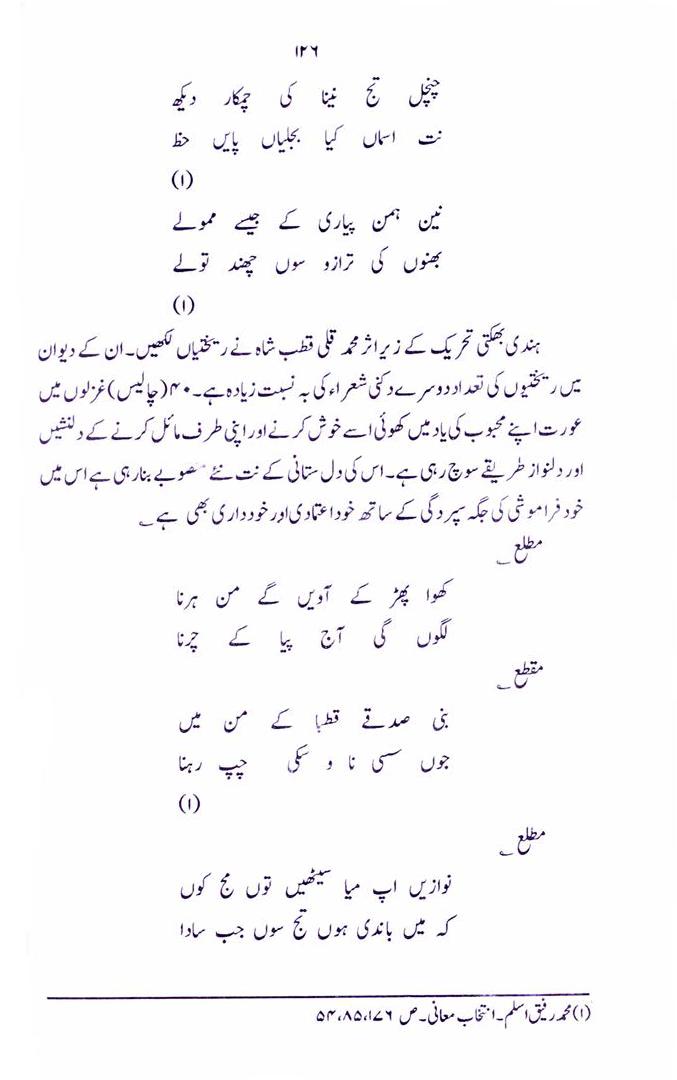 ۱۲۶
چنچل تج نینا کی چمکار دیکھ
نت اسماں کیا بجلیاں پایں حظ
(۱)
نین ہمن پیاری کے جیسے ممولے
بھنوں کی ترازو سوں چھند تولے
(۱)
ہندی بھکتی تحریک کے زیر اثر محمد قلی قطب شاہ نے ریختیاں لکھیں۔ ان کے دیوان
میں ریختیوں کی تعداد دوسرے دکنی شعراء کی بہ نسبت زیادہ ہے۔ ۴۰ (چالیس) غزلوں میں
عورت اپنے محبوب کی یاد میں کھوئی اسے خوش کرنے اور اپنی طرف مائل کرنے کے دلنشیں
اور دلنواز طریقے سوچ رہی ہے۔ اس کی دل ستانی کے نت نئے منصوبے بنا رہی ہے اس میں
خود فراموشی کی جگہ سپردگی کے ساتھ خود اعتمادی اور خود داری بھی ہے ؎
مطلع ؎
کھوا پھڑ کے آویں گے من ہرنا
لگوں گی آج پیا کے چرنا
مقطع ؎
بنی صدقے قطبا کے من میں
جوں سسی نا و سکی چپ رہنا
(۱)
مطلع ؎
نوازیں اپ میا سیٹھیں توں مج کوں
کہ میں باندی ہوں تج سوں جب سادا
(۱) محمد رفیق اسلم۔ انتخاب معانی۔ ص ۵۴،۸۵،۱۷۶